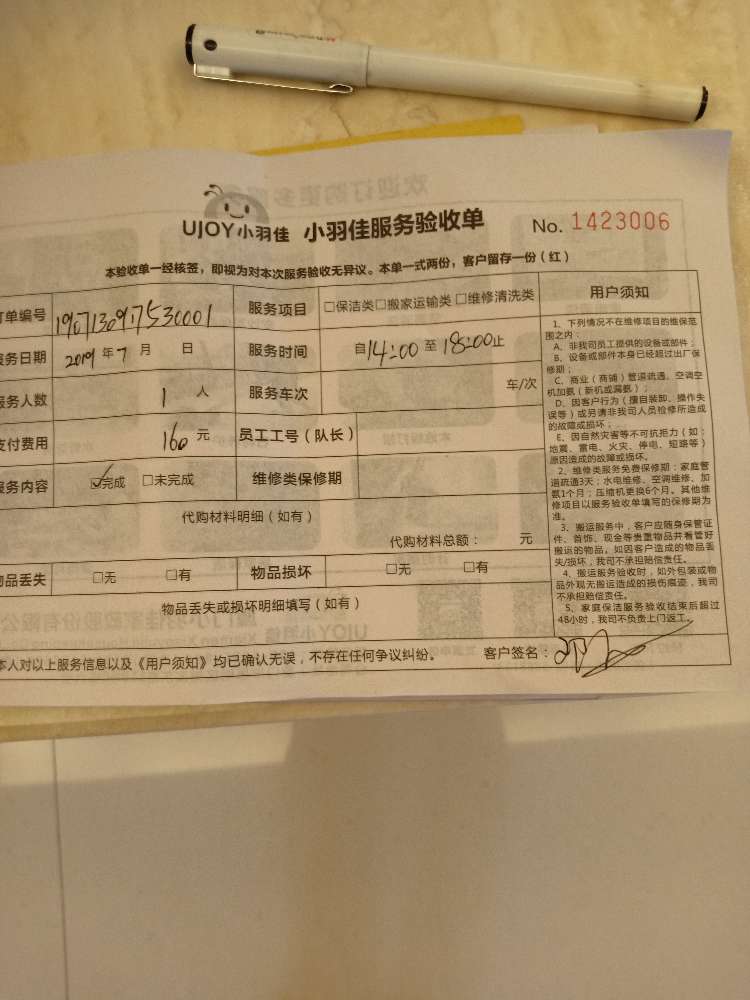 UJOY小羽佳 小羽佳服务验收单 No. 1423006
本验收单一经核签，即视为对本次服务验收无异议。本单一式两份，客户留存一份（红）
单编号 1907130917530001 服务项目 □保洁类□搬家运输类□维修清洗类
服务日期 2019年7月 日 服务时间 自14:00至18:00止
服务人数 1人 服务车次 车/次
支付费用 160元 员工工号（队长）
服务内容 ☑完成 □未完成 维修类保修期
代购材料明细（如有）
代购材料总额： 元
物品丢失 □无 □有 物品损坏 □无 □有
物品丢失或损坏明细填写（如有）
本人对以上服务信息以及《用户须知》均已确认无误，不存在任何争议纠纷。 客户签名：
用户须知
1、下列情况不在维修项目的维保范
围之内：
A、非我司员工提供的设备或部件；
B、设备或部件本身已经超过出厂保
修期；
C、商业（商铺）管道疏通、空调空
机加氨（新机或漏氨）；
D、因客户行为（擅自装卸、操作失
误等）或另请非我司人员检修所造成
的故障或损坏；
E、因自然灾害等不可抗拒力（如：
地震、雷电、火灾、停电、短路等）
原因造成的故障或损坏。
2、维修类服务免费保修期：家庭管
道疏通3天；水电维修、空调维修、加
氨1个月；压缩机更换6个月。其他维
修项目以服务验收单填写的保修期为
准。
3、搬运服务中，客户应随身保管证
件、首饰、现金等贵重物品并看管好
搬运的物品。如因客户造成的物品丢
失/损坏，我司不承担赔偿责任。
4、搬运服务验收时，如外包装或物
品外观无搬运造成的损伤痕迹，我司
不承担赔偿责任。
5、家庭保洁服务验收结束后超过
48小时，我司不负责上门返工。